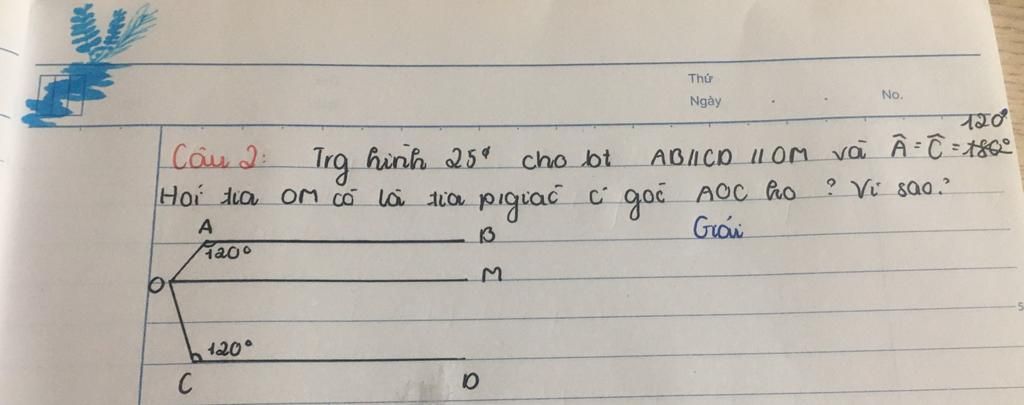 Thứ
Ngày . . No.
120°
Câu 2: Trg hình 25a cho bt AB//CD // OM và Â = Ĉ = 180°
Hỏi tia OM có là tia p.giác c góc AOC ko ? Vì sao?
Giải
A
B
120°
O
M
120°
C
D
5